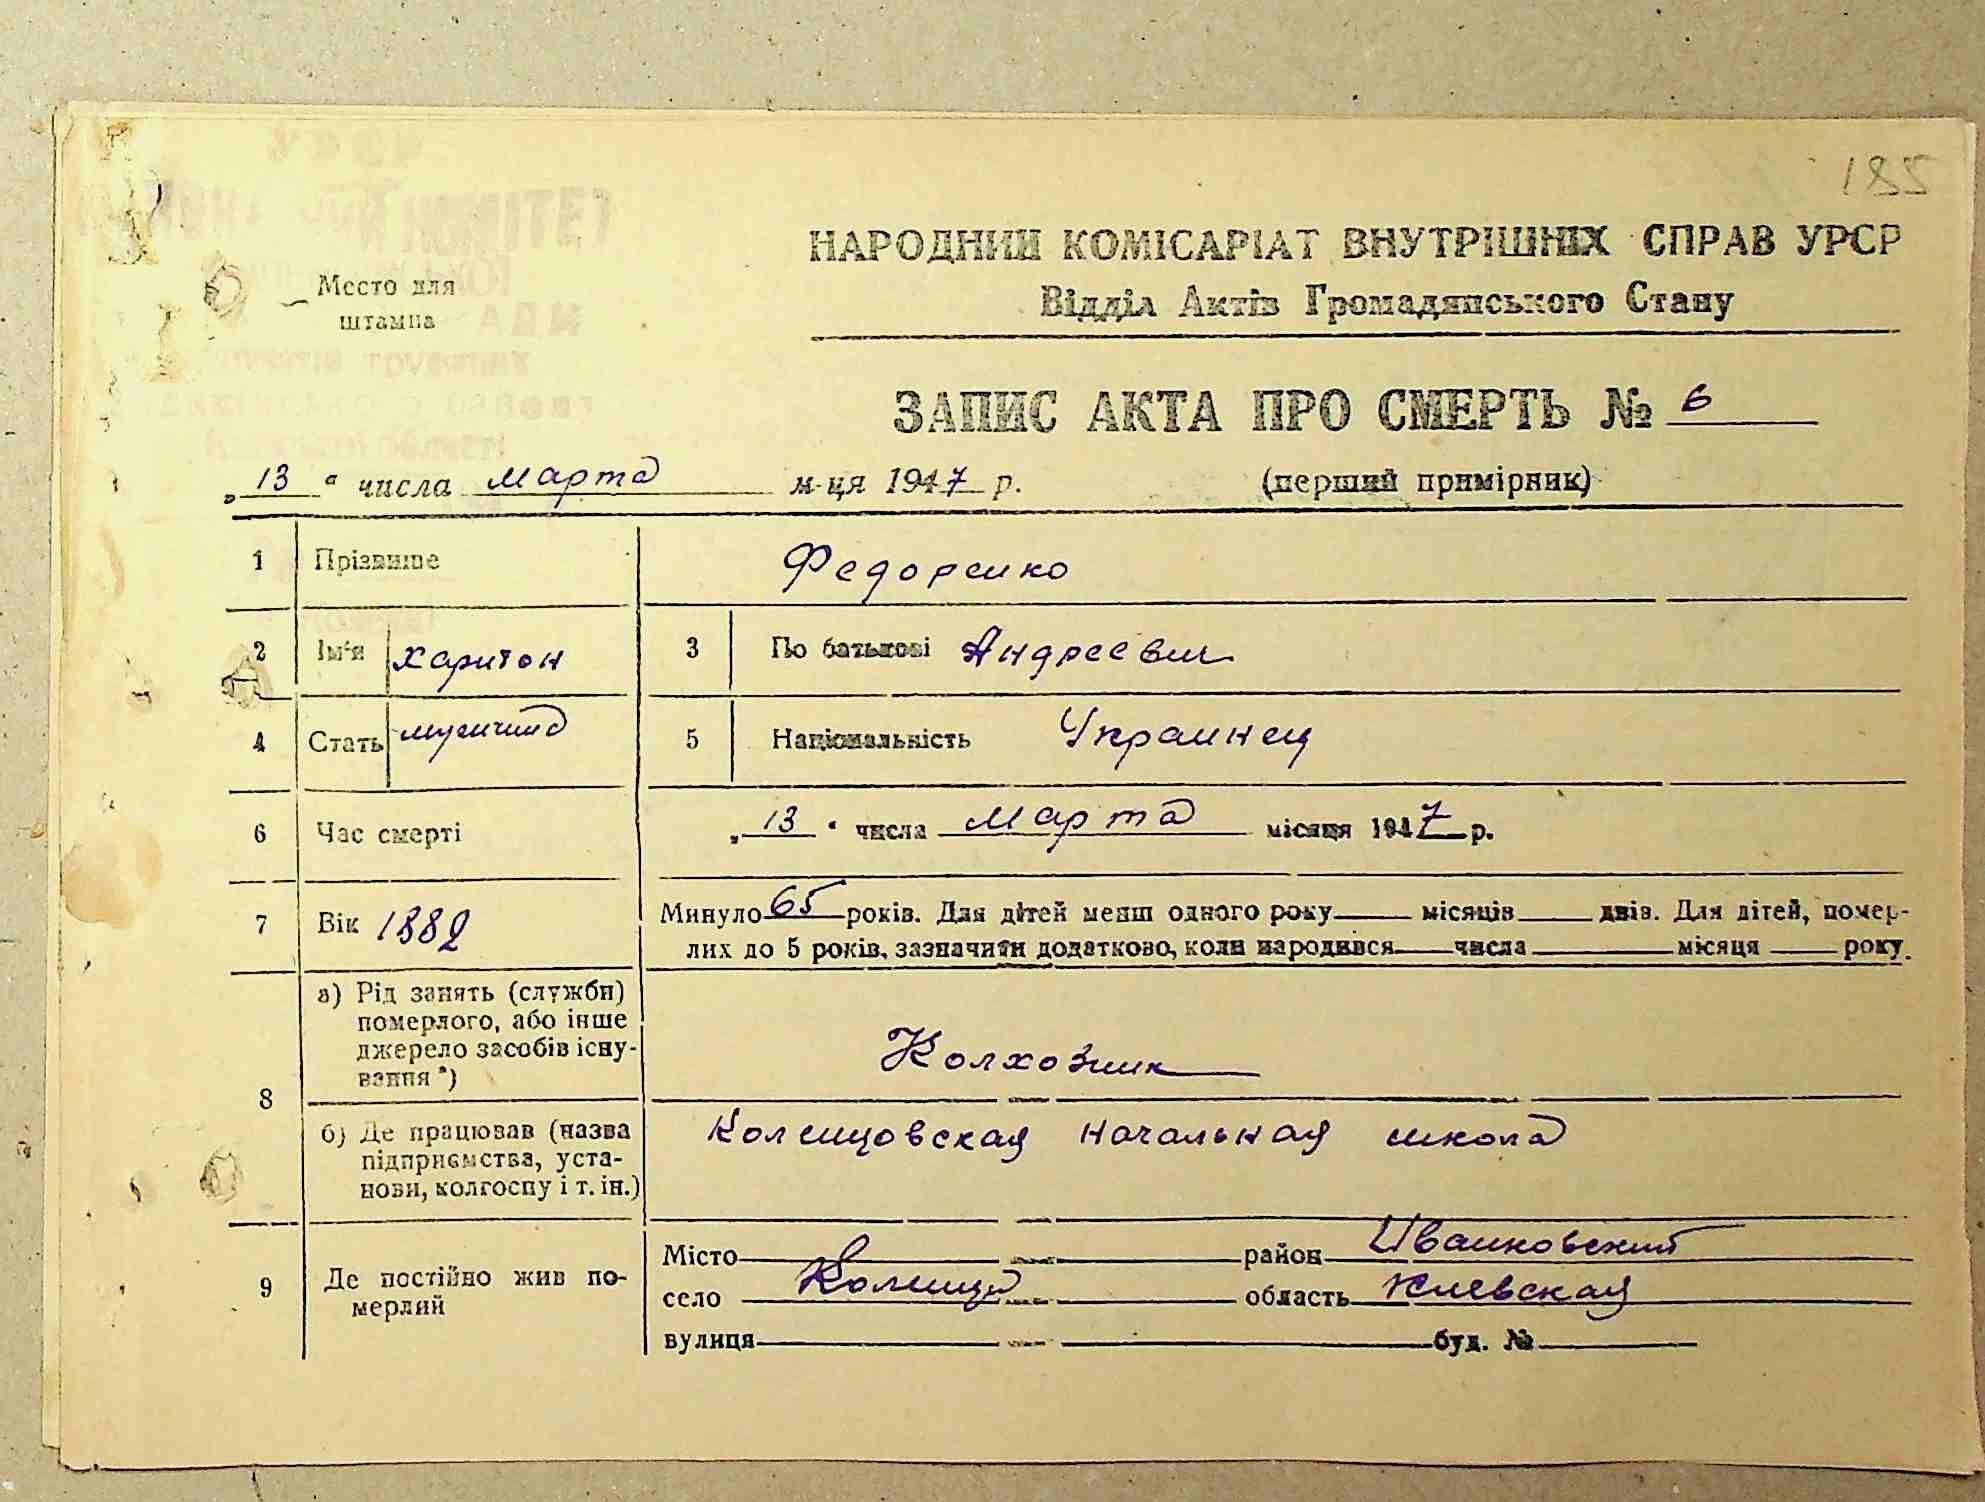 185
НАРОДНИЙ КОМІСАРІАТ ВНУТРІШНІХ СПРАВ УРСР
Место для
штампа
Відділ Актів Громадянського Стану
ЗАПИС АКТА ПРО СМЕРТЬ № 6
„ 13 “ числа марта м-ця 1947 р. (перший примірник)
1 Прізвище Федоренко
2 Ім'я Харитон 3 По батькові Андреевич
4 Стать мужчина 5 Національність Украинец
6 Час смерті „ 13 “ числа марта місяця 1947 р.
7 Вік 1882 Минуло 65 років. Для дітей менш одного року місяців днів. Для дітей, помер-
лих до 5 років, зазначити додатково, коли народився числа місяця року.
8 а) Рід занять (служби)
померлого, або інше
джерело засобів існу-
вання *) Колхозник
б) Де працював (назва
підприємства, уста-
нови, колгоспу і т. ін.) Коленцовская начальная школа
9 Де постійно жив по-
мерлий
Місто район Иванковский
село Коленцы область Киевская
вулиця буд. №